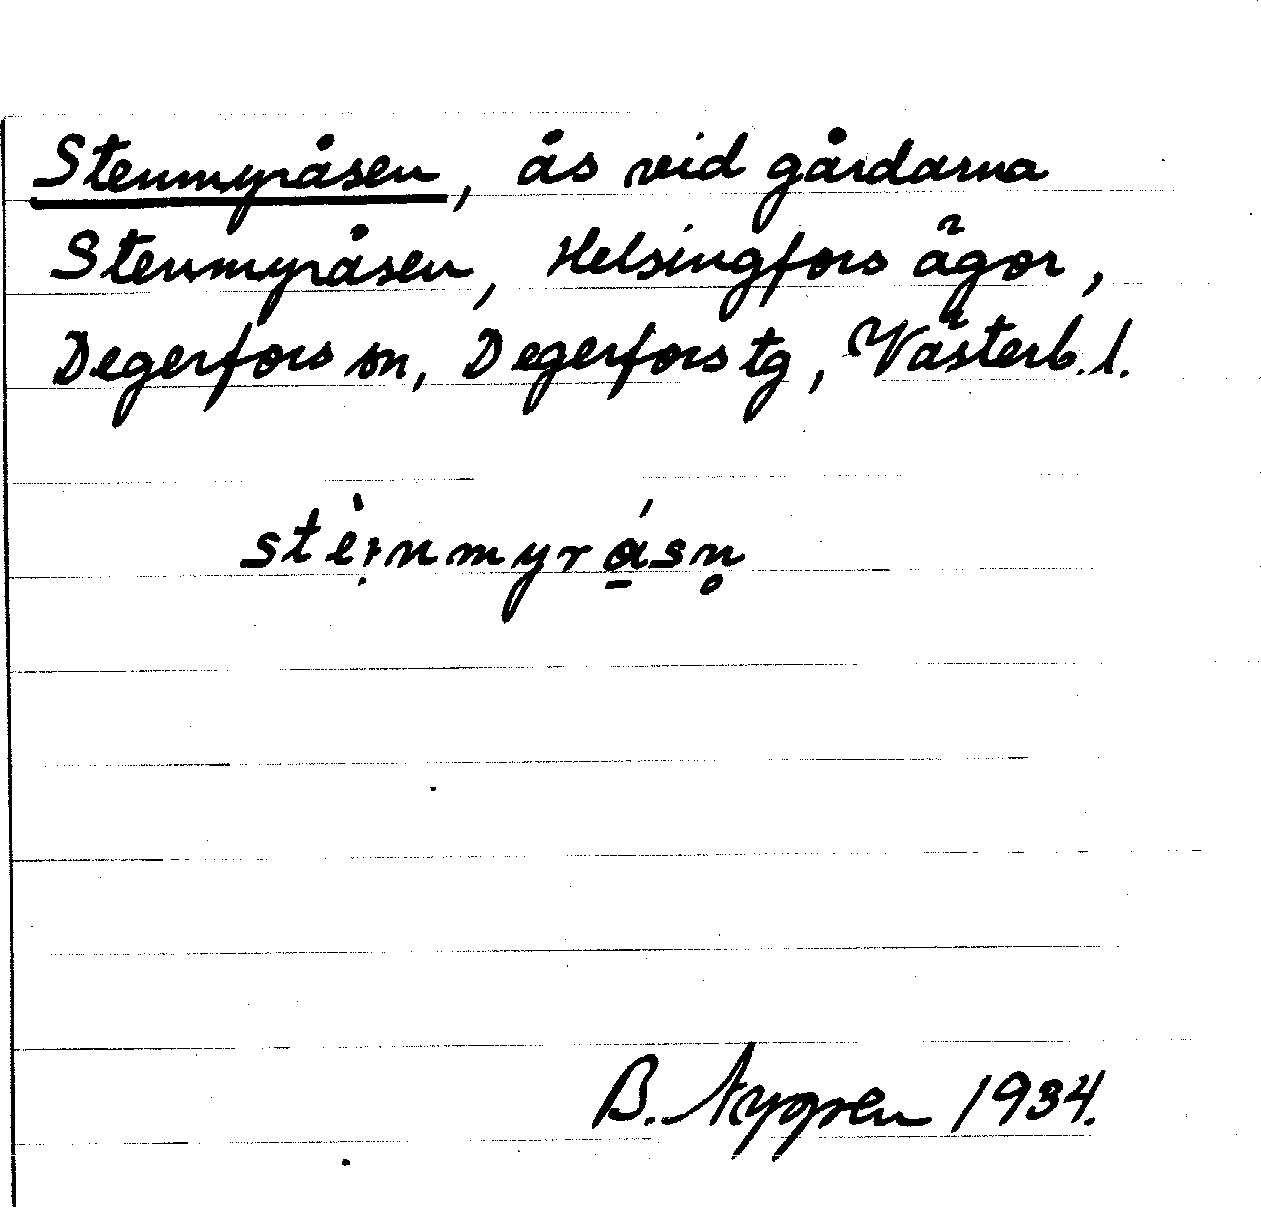 Stenmyråsen, ås vid gårdarna
Stenmyråsen, Helsingfors ägor,
Degerfors sn, Degerfors tg, Västerb. l.
stè̩ɪnmyrá̱sn̥
B. Nygren 1934.